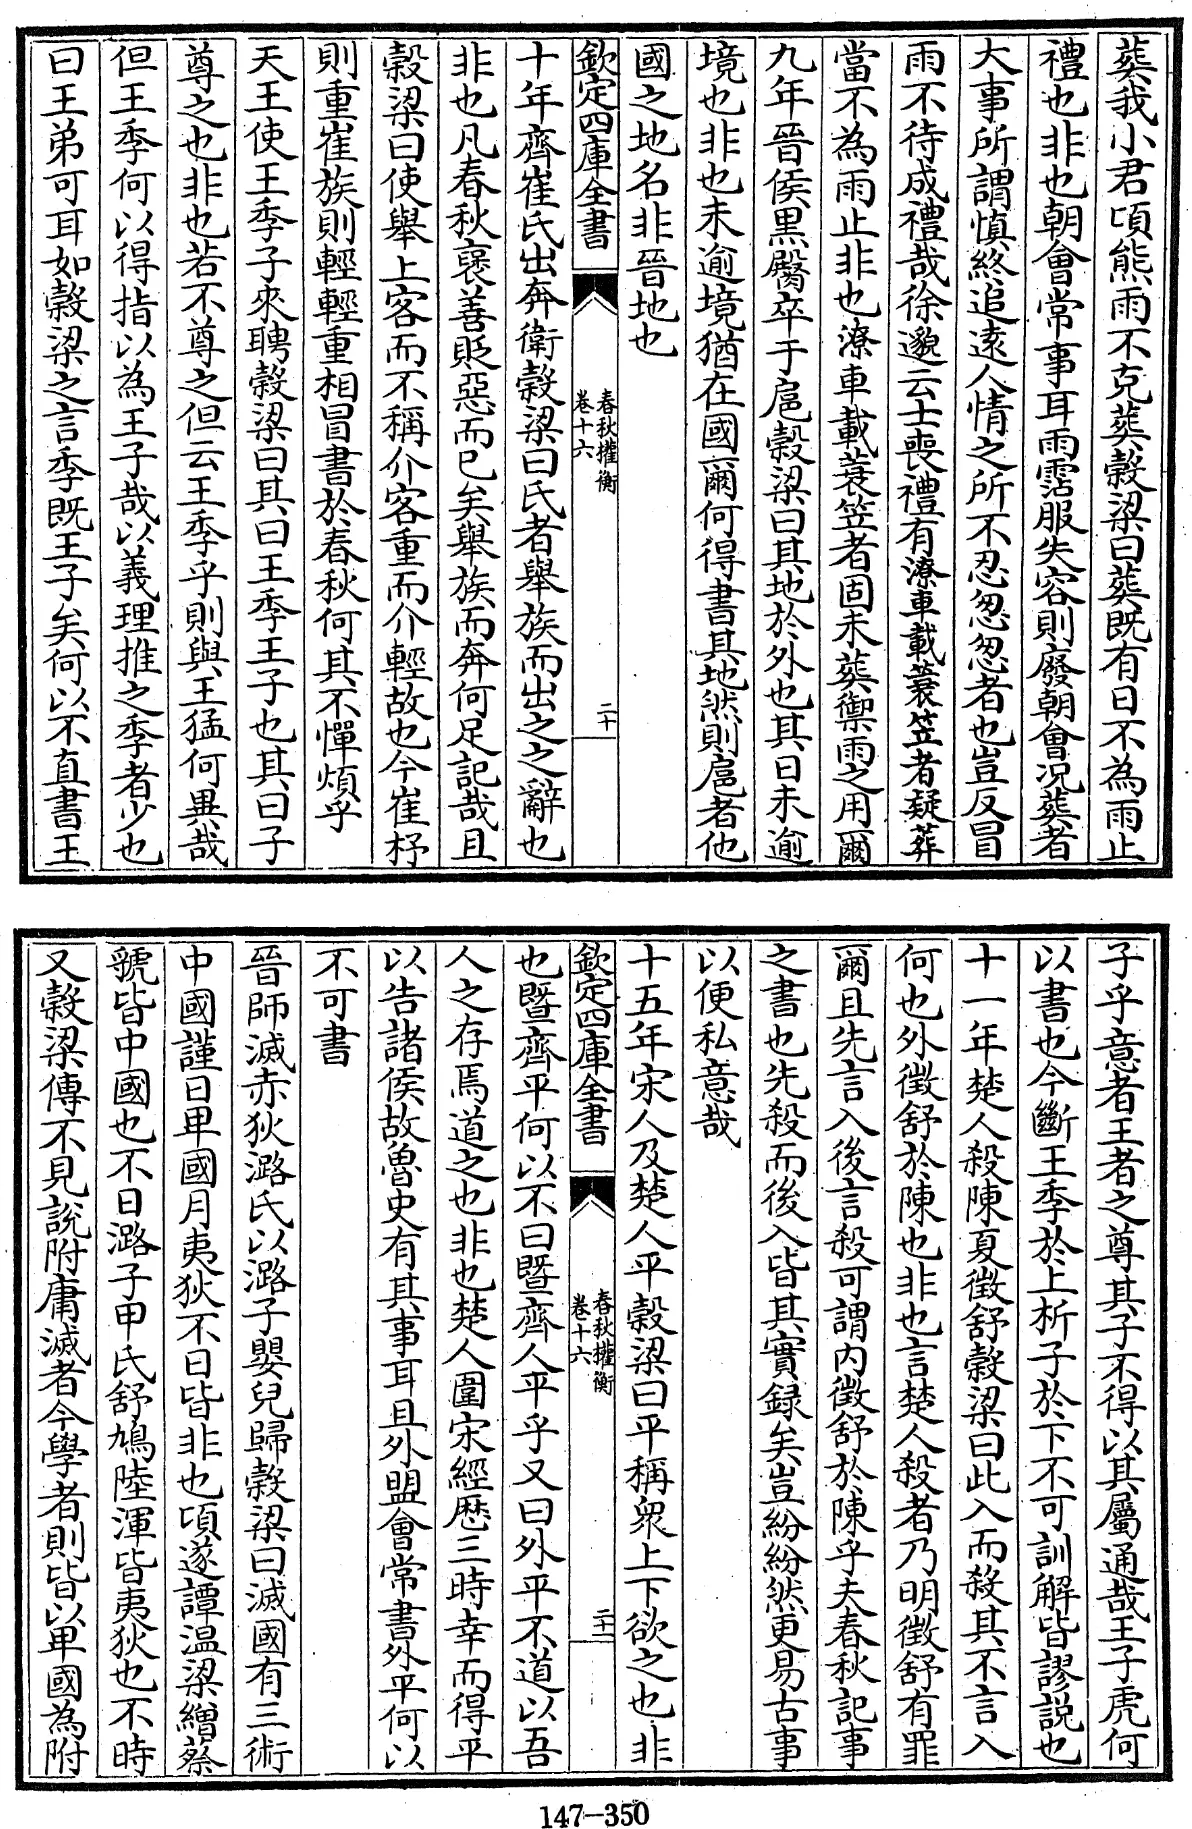 葬我小君頃熊雨不克葬穀梁曰葬既有日不為雨止
禮也非也朝會常事耳雨霑服失容則廢朝會況葬者
大事所謂慎終追逺人情之所不忍忽忽者也豈反冒
雨不待成禮哉徐邈云士喪禮有潦車載蓑笠者疑葬
當不為雨止非也潦車載蓑笠者固未葬禦雨之用爾
九年晉侯黒臋卒于扈穀梁曰其地於外也其日未逾
境也非也未逾境猶在國爾何得書其地然則扈者他
國之地名非晉地也
欽定四庫全書
春秋權衡
卷十六
二十
十年齊崔氏出奔衛穀梁曰氏者舉族而出之之辭也
非也凡春秋襃善貶惡而已矣舉族而奔何足記哉且
穀梁曰使舉上客而不稱介客重而介輕故也今崔杼
則重崔族則輕輕重相冒書於春秋何其不憚煩乎
天王使王季子來聘穀梁曰其曰王季王子也其曰子
尊之也非也若不尊之但云王季乎則與王猛何異哉
但王季何以得指以為王子哉以義理推之季者少也
曰王弟可耳如穀梁之言季既王子矣何以不直書王
子乎意者王者之尊其子不得以其屬通哉王子虎何
以書也今斷王季於上析子於下不可訓解皆謬説也
十一年楚人殺陳夏徴舒穀梁曰此入而殺其不言入
何也外徴舒於陳也非也言楚人殺者乃明徴舒有罪
爾且先言入後言殺可謂内徴舒於陳乎夫春秋記事
之書也先殺而後入皆其實録矣豈紛紛然更易古事
以便私意哉
十五年宋人及楚人平穀梁曰平稱衆上下欲之也非
欽定四庫全書
春秋權衡
卷十六
二十一
也曁齊平何以不曰曁齊人平乎又曰外平不道以吾
人之存焉道之也非也楚人圍宋經歴三時幸而得平
以告諸侯故魯史有其事耳且外盟會常書外平何以
不可書
晉師滅赤狄潞氏以潞子嬰兒歸穀梁曰滅國有三術
中國謹日卑國月夷狄不日皆非也頃遂譚温梁繒蔡
虢皆中國也不日潞子甲氏舒鳩陸渾皆夷狄也不時
又穀梁傳不見説附庸滅者今學者則皆以卑國為附
147-350